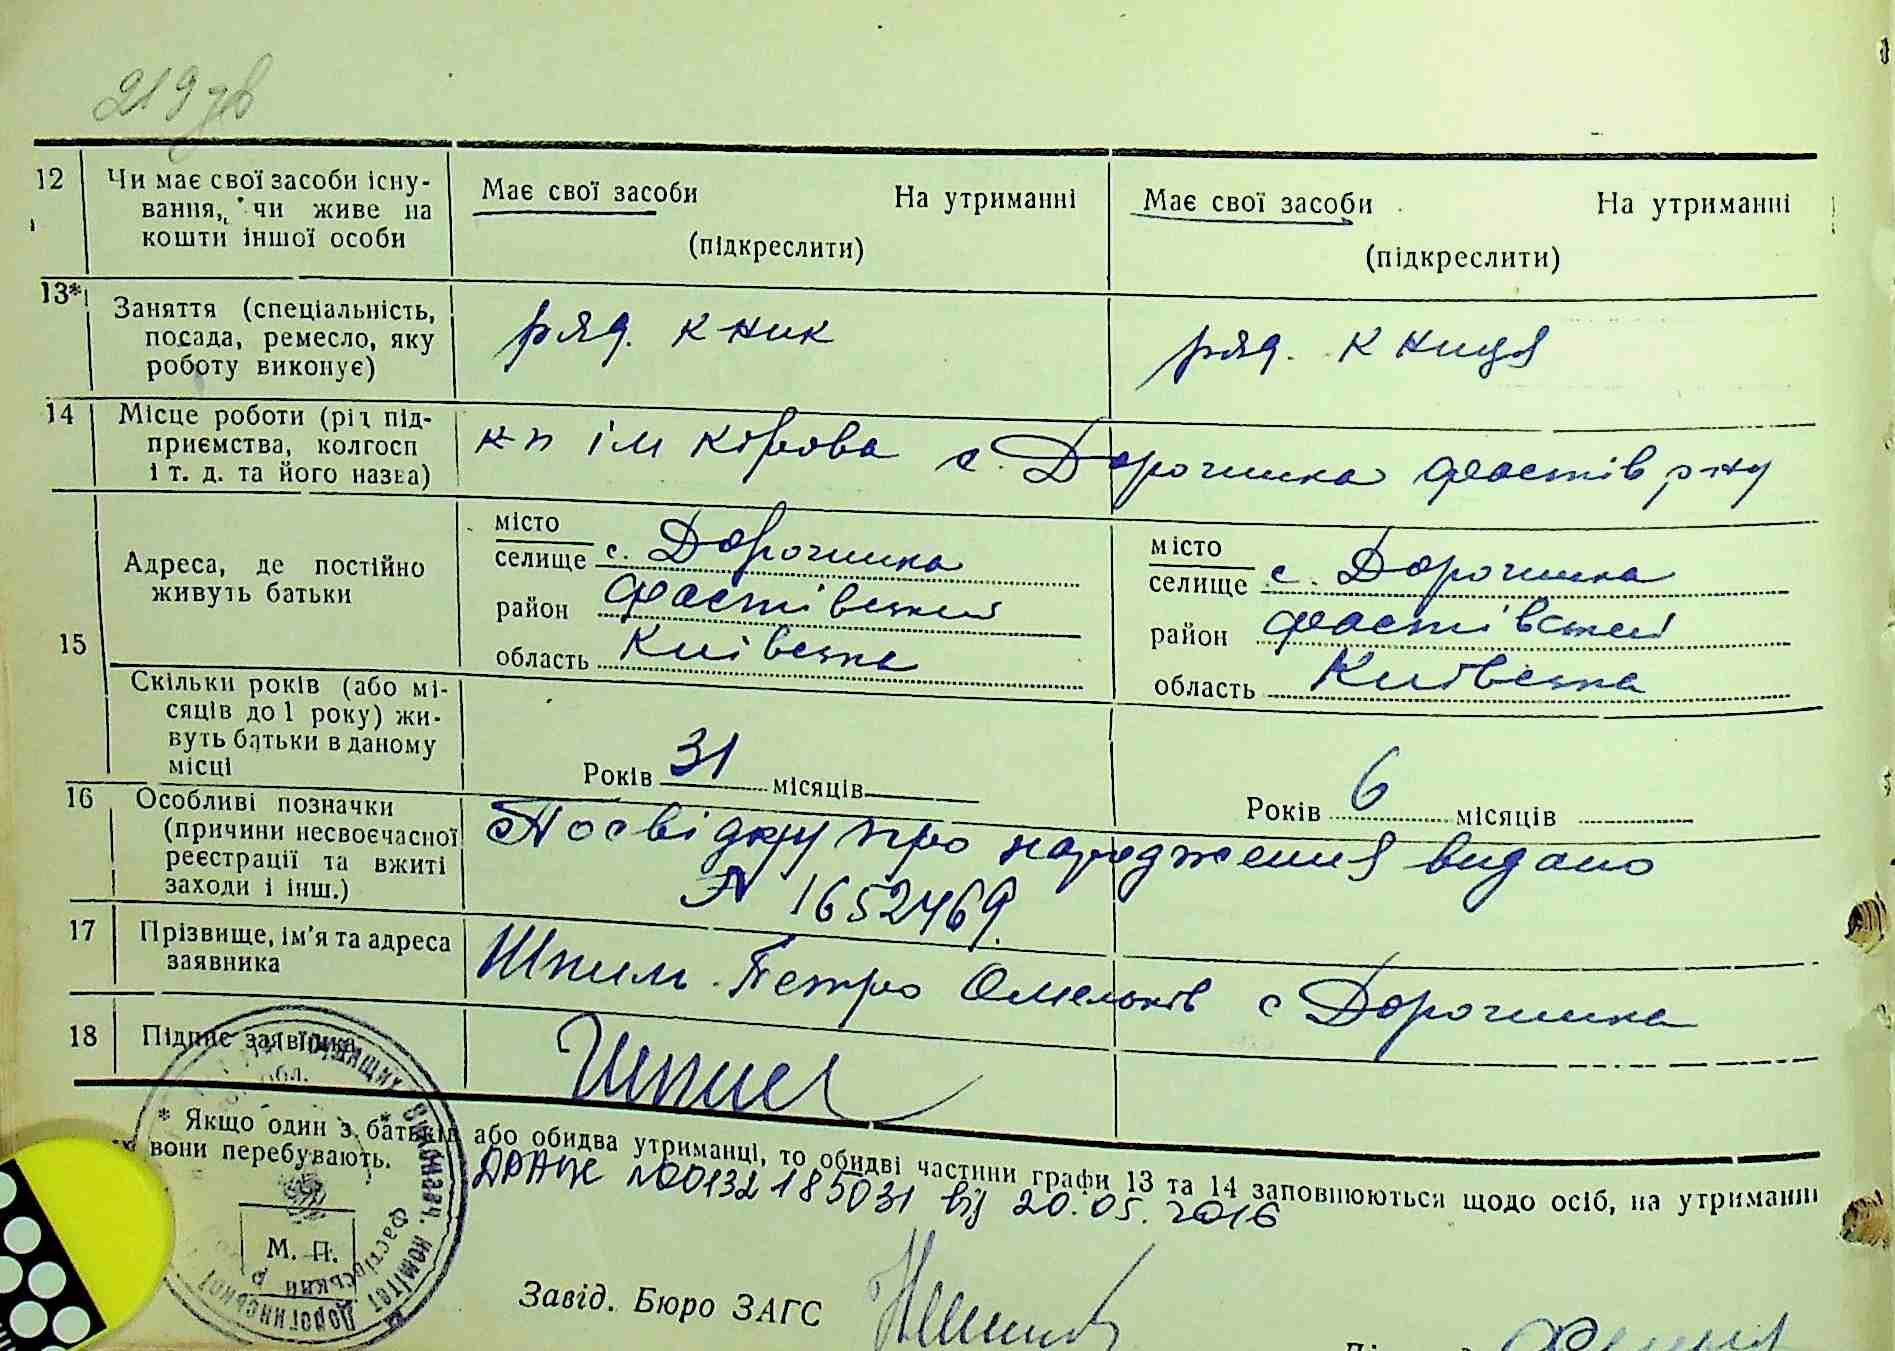 219 зв
12 Чи має свої засоби існу- Має свої засоби На утриманні Має свої засоби На утриманні
вання, чи живе на
кошти іншої особи (підкреслити) (підкреслити)
13* Заняття (спеціальність,
посада, ремесло, яку ряд. к-ник ряд. к-ниця
роботу виконує)
14 Місце роботи (рід під-
приємства, колгосп к-п ім Кірова с. Дорогинка Фастів р-ну
і т. д. та його назва)
15 Адреса, де постійно
живуть батьки
місто
селище с. Дорогинка
район Фастівський
область Київська
місто
селище с. Дорогинка
район Фастівський
область Київська
Скільки років (або мі-
сяців до 1 року) жи-
вуть батьки в даному
місці
Років 31 місяців
Років 6 місяців
16 Особливі позначки
(причини несвоєчасної
реєстрації та вжиті
заходи і інш.)
Посвідку про народження видано
№ 1652469.
17 Прізвище, ім'я та адреса
заявника
Шпиль Петро Омельків с Дорогинка
18 Підпис заявника Шпиль
* Якщо один з батьків або обидва утриманці, то обидві частини графи 13 та 14 заповнюються щодо осіб, на утриманні
їх вони перебувають.
ДРАЦС №00132185031 від 20.05.2016
М. П.
виконавч. комітет Дорогинської
Фастівський р
Завід. Бюро ЗАГС